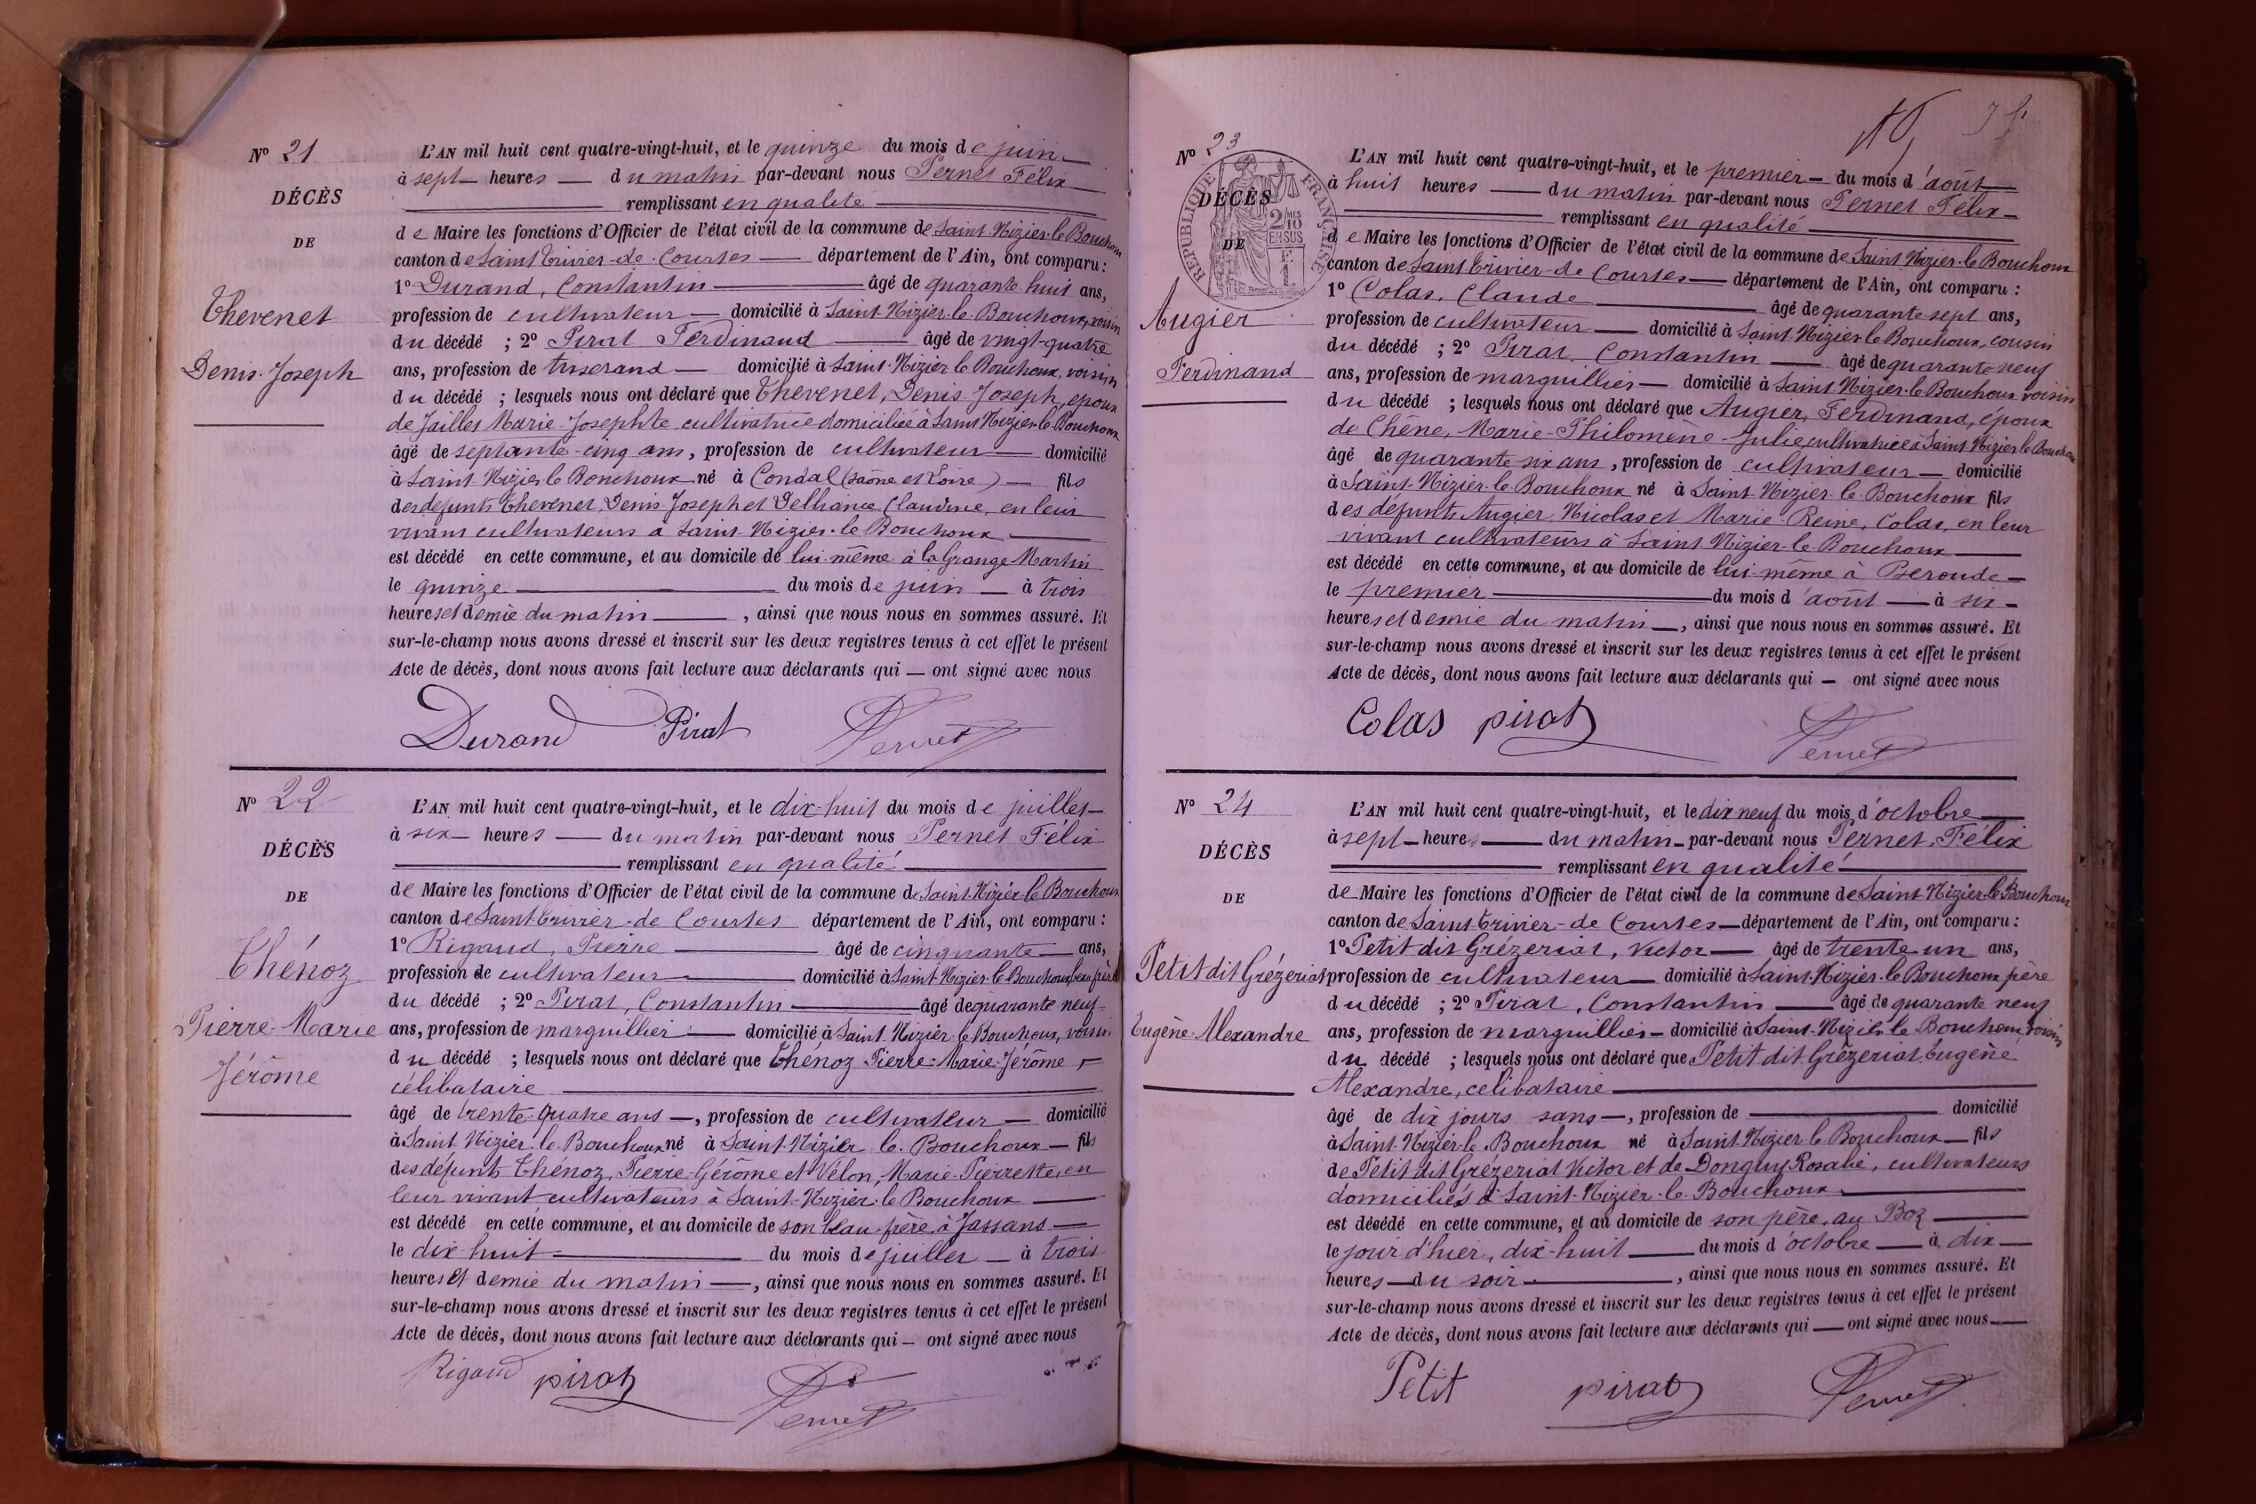 Nº 21
DÉCÈS
DE
Thevenet
Denis-Joseph
L'AN mil huit cent quatre-vingt-huit, et le quinze du mois de juin
à sept heures du matin par-devant nous Pernet Félix
remplissant en qualité
de Maire les fonctions d'Officier de l'état civil de la commune de Saint-Nizier-le-Bouchoux
canton de Saint-Trivier-de-Courtes département de l'Ain, ont comparu :
1º Durand, Constantin âgé de quarante huit ans,
profession de cultivateur domicilié à Saint-Nizier-le-Bouchoux, voisin
du décédé ; 2º Pirat Ferdinand âgé de vingt-quatre
ans, profession de tisserand domicilié à Saint-Nizier le Bouchoux, voisin
du décédé ; lesquels nous ont déclaré que Thevenet, Denis-Joseph, époux
de Jailles Marie-Josephte cultivatrice domiciliée à Saint Nizier-le-Bouchoux
âgé de septante-cinq ans, profession de cultivateur domicilié
à Saint Nizier le Bouchoux né à Condal (Saône et Loire) fils
des défunts Thevenet Denis Joseph et Claudine, en leur
vivant cultivateurs à Saint-Nizier-le Bouchoux
est décédé en cette commune, et au domicile de lui-même à la Grange Martin
le quinze du mois de juin à trois
heures et demie du matin, ainsi que nous nous en sommes assuré. Et
sur-le-champ nous avons dressé et inscrit sur les deux registres tenus à cet effet le présent
Acte de décès, dont nous avons fait lecture aux déclarants qui — ont signé avec nous
Durand Pirat Pernet
Nº 22
DÉCÈS
DE
Thénoz
Pierre-Marie
Jérôme
L'AN mil huit cent quatre-vingt-huit, et le dix-huit du mois de juillet
à six heures du matin par-devant nous Pernet Félix
remplissant en qualité
de Maire les fonctions d'Officier de l'état civil de la commune de Saint-Nizier-le Bouchoux
canton de Saint Trivier-de Courtes département de l'Ain, ont comparu :
1º Rigaud, Pierre âgé de cinquante ans,
profession de cultivateur domicilié à Saint-Nizier-le-Bouchoux, beau-père
du décédé ; 2º Pirat, Constantin âgé de quarante neuf
ans, profession de marguillier domicilié à Saint Nizier le Bouchoux, voisin
du décédé ; lesquels nous ont déclaré que Thénoz Pierre-Marie-Jérôme
célibataire
âgé de trente-quatre ans, profession de cultivateur domicilié
à Saint Nizier-le Bouchoux né à Saint-Nizier le Bouchoux fils
des défunts Thénoz, Pierre-Gérôme et Velon, Marie-Pierrette, en
leur vivant cultivateurs à Saint-Nizier-le Bouchoux
est décédé en cette commune, et au domicile de son beau-père à Jassans
le dix-huit du mois de juillet à trois
heures et demie du matin, ainsi que nous nous en sommes assuré. Et
sur-le-champ nous avons dressé et inscrit sur les deux registres tenus à cet effet le présent
Acte de décès, dont nous avons fait lecture aux déclarants qui — ont signé avec nous
Rigaud pirat Pernet
Nº 23
DÉCÈS
DE
RÉPUBLIQUE FRANÇAISE
2/10 EN SUS
Augier
Ferdinand
L'AN mil huit cent quatre-vingt-huit, et le premier du mois d'août
à huit heures du matin par-devant nous Pernet Félix
remplissant en qualité
de Maire les fonctions d'Officier de l'état civil de la commune de Saint Nizier-le Bouchoux
canton de Saint Trivier-de Courtes département de l'Ain, ont comparu :
1º Colas, Claude âgé de quarante sept ans,
profession de cultivateur domicilié à Saint Nizier-le Bouchoux, cousin
du décédé ; 2º Pirat Constantin âgé de quarante neuf
ans, profession de marguillier domicilié à Saint Nizier-le Bouchoux voisin
du décédé ; lesquels nous ont déclaré que Augier, Ferdinand, époux
de Chêne, Marie-Philomène-Julie cultivatrice à Saint Nizier le Bouchoux
âgé de quarante six ans, profession de cultivateur domicilié
à Saint-Nizier-le Bouchoux né à Saint-Nizier-le-Bouchoux fils
des défunts Augier Nicolas et Marie-Reine, Colas, en leur
vivant cultivateurs à Saint Nizier-le Bouchoux
est décédé en cette commune, et au domicile de lui-même à Beroude
le premier du mois d'août à six
heures et demie du matin, ainsi que nous nous en sommes assuré. Et
sur-le-champ nous avons dressé et inscrit sur les deux registres tenus à cet effet le présent
Acte de décès, dont nous avons fait lecture aux déclarants qui — ont signé avec nous
Colas pirat Pernet
Nº 24
DÉCÈS
DE
Petit dit Grézeriat
Eugène-Alexandre
L'AN mil huit cent quatre-vingt-huit, et le dix neuf du mois d'octobre
à sept heures du matin par-devant nous Pernet, Félix
remplissant en qualité
de Maire les fonctions d'Officier de l'état civil de la commune de Saint-Nizier-le-Bouchoux
canton de Saint-Trivier-de Courtes département de l'Ain, ont comparu :
1º Petit dit Grézeriat, Victor âgé de trente un ans,
profession de cultivateur domicilié à Saint-Nizier-le Bouchoux père
du décédé ; 2º Pirat, Constantin âgé de quarante neuf
ans, profession de marguillier domicilié à Saint-Nizier le Bouchoux, voisin
du décédé ; lesquels nous ont déclaré que Petit dit Grézeriat, Eugène
Alexandre, célibataire
âgé de dix jours sans, profession de domicilié
à Saint-Nizier-le-Bouchoux né à Saint-Nizier le Bouchoux fils
de Petit dit Grézeriat Victor et de Donguy Rosalie, cultivateurs
domiciliés à Saint-Nizier-le-Bouchoux
est décédé en cette commune, et au domicile de son père, au Boz
le jour d'hier, dix-huit du mois d'octobre à dix
heures du soir, ainsi que nous nous en sommes assuré. Et
sur-le-champ nous avons dressé et inscrit sur les deux registres tenus à cet effet le présent
Acte de décès, dont nous avons fait lecture aux déclarants qui — ont signé avec nous
Petit pirat Pernet